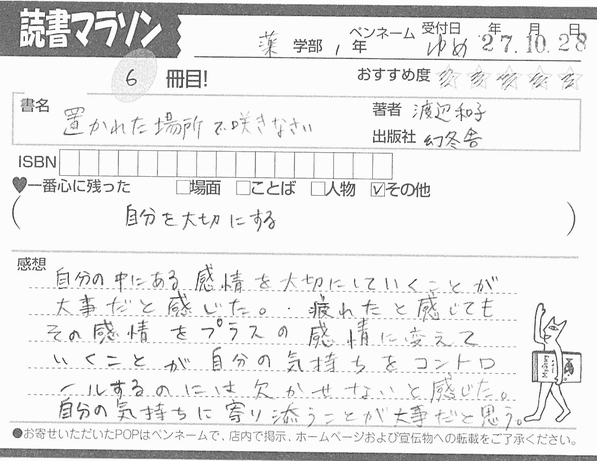 読書マラソン
薬 学部 1 年 ペンネーム ゆめ 受付日 27年.10月.28日
6 冊目! おすすめ度 ☆☆☆☆☆
書名 置かれた場所で咲きなさい 著者 渡辺和子
出版社 幻冬舎
ISBN
♥一番心に残った □場面 □ことば □人物 ☑その他
( 自分を大切にする )
感想
自分の中にある感情を大切にしていくことが
大事だと感じた。・疲れたと感じても
その感情をプラスの感情に変えて
いくことが自分の気持ちをコントロ
ールするのには欠かせないと感じた。
自分の気持ちに寄り添うことが大事だと思う。
●お寄せいただいたPOPはペンネームで、店内で掲示、ホームページおよび宣伝物への転載をご了承ください。